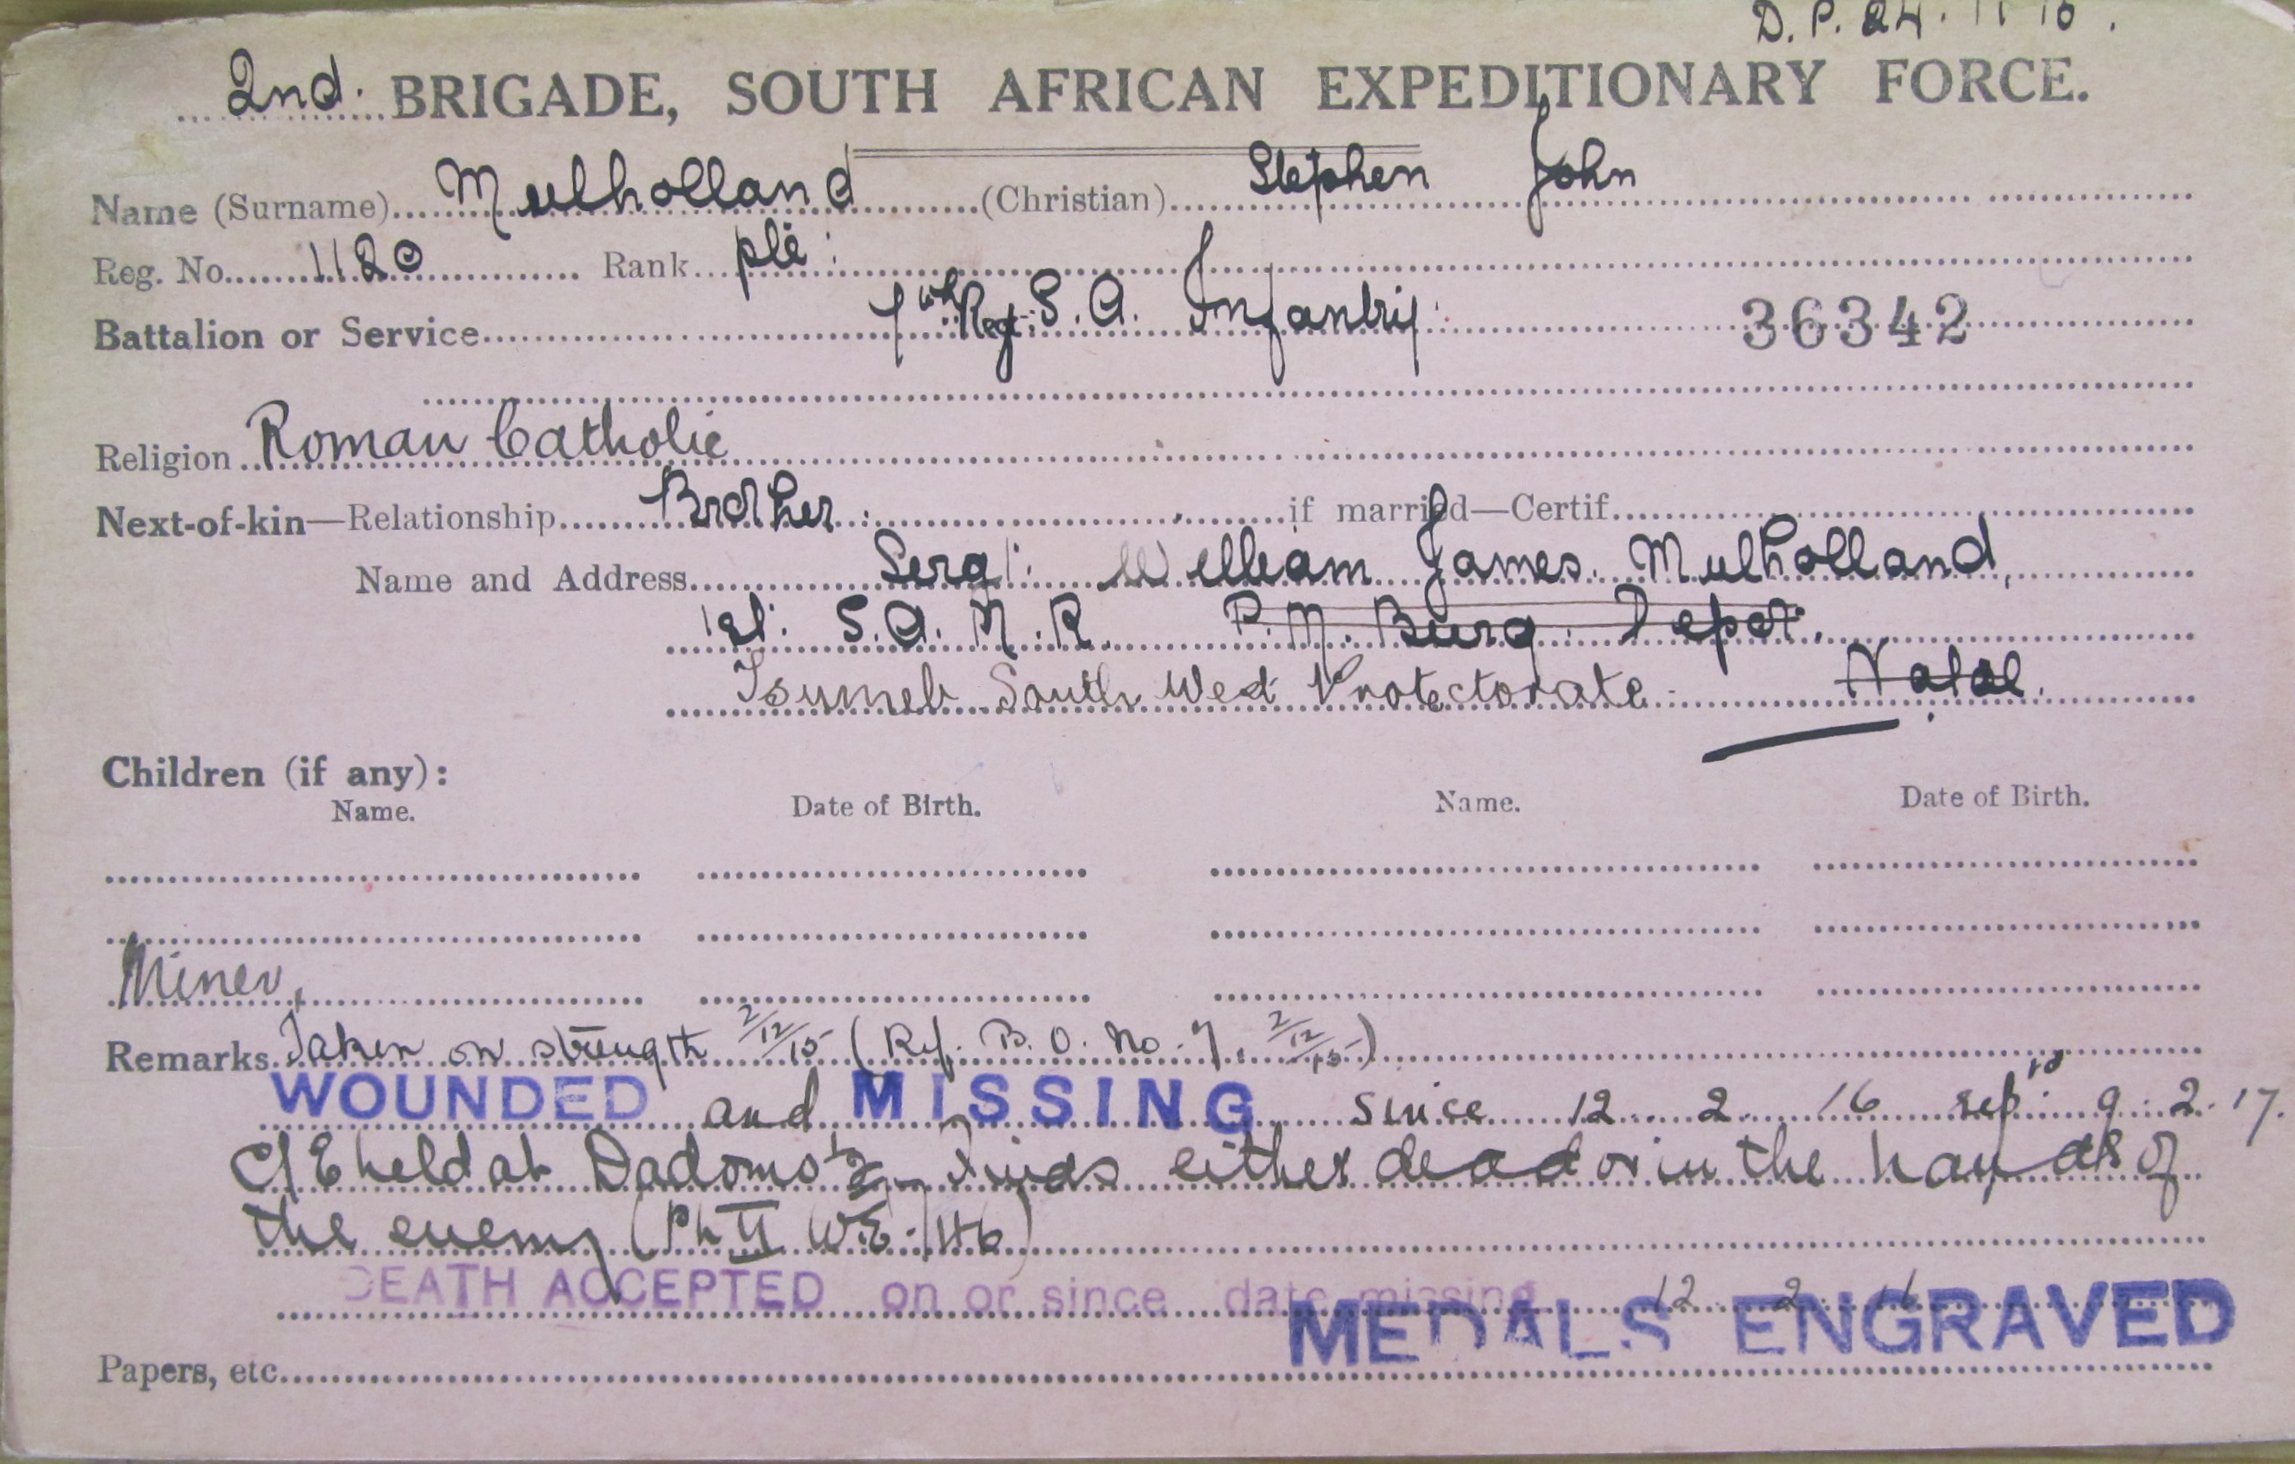 D. P. 24. 11
2nd. BRIGADE, SOUTH AFRICAN EXPEDITIONARY FORCE.
Name (Surname) Mulholland (Christian) Stephen John
Reg. No. 1120 Rank pte:
Battalion or Service 7th Regt: S. A. Infantry: 36342
Religion Roman Catholic
Next-of-kin—Relationship Brother. if married—Certif.
Name and Address Sergt: William James Mulholland,
1st: S. A. M. R. P. M. Burg. Depot.
Tsumeb South West Protectorate Natal.
Children (if any):
Name. Date of Birth. Name. Date of Birth.
Miner,
Remarks Taken on strength 2/12/15 (Ref. B. O. No. 7, 2/12/15)
WOUNDED and MISSING since 12 2 16 9. 2. 17.
C/E held at finds either dead or in the hands of
the enemy (Pt II W.E./46)
DEATH ACCEPTED on or since date missing 12 2 16
MEDALS ENGRAVED
Papers, etc.